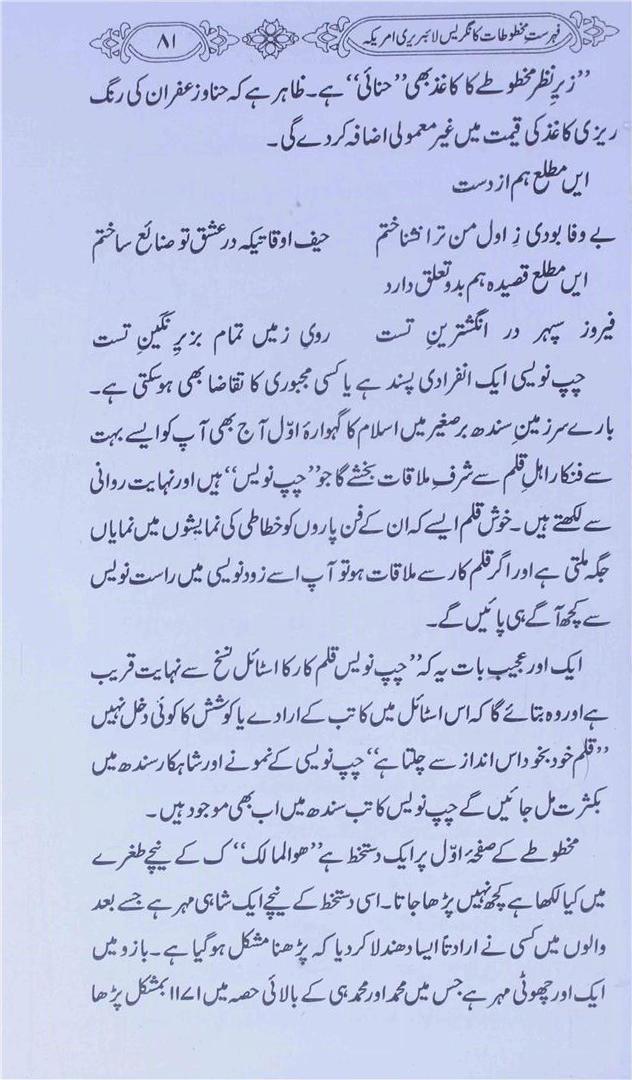 فہرستِ مخطوطات کانگریس لائبریری امریکہ
۸۱
’’زیرِ نظر مخطوطے کا کاغذ بھی ’’حنائی‘‘ ہے۔ ظاہر ہے کہ حنا و زعفران کی رنگ
ریزی کاغذ کی قیمت میں غیر معمولی اضافہ کر دے گی۔
ایں مطلع ہم از دست
بے وفا بودی زِ اول من ترا نشناختم حیف اوقاتیکہ در عشق تو ضائع ساختم
ایں مطلع قصیدہ ہم بدو تعلق دارد
فیروز سپہر در انگشترینِ تست رویِ زمیں تمام بزیرِ نگینِ تست
چپ نویسی ایک انفرادی پسند ہے یا کسی مجبوری کا تقاضا بھی ہو سکتی ہے۔
بارے سرزمینِ سندھ برصغیر میں اسلام کا گہوارۂ اوّل آج بھی آپ کو ایسے بہت
سے فنکار اہلِ قلم سے شرفِ ملاقات بخشے گا جو ’’چپ نویس‘‘ ہیں اور نہایت روانی
سے لکھتے ہیں۔ خوش قلم ایسے کہ ان کے فن پاروں کو خطاطی کی نمایشوں میں نمایاں
جگہ ملتی ہے اور اگر قلم کار سے ملاقات ہو تو آپ اسے زود نویسی میں راست نویس
سے کچھ آگے ہی پائیں گے۔
ایک اور عجیب بات یہ کہ ’’چپ نویس قلم کار کا اسٹائل نسخ سے نہایت قریب
ہے اور وہ بتائے گا کہ اس اسٹائل میں کاتب کے ارادے یا کوشش کا کوئی دخل نہیں
’’قلم خود بخود اس انداز سے چلتا ہے‘‘ چپ نویسی کے نمونے اور شاہکار سندھ میں
بکثرت مل جائیں گے چپ نویس کاتب سندھ میں اب بھی موجود ہیں۔
مخطوطے کے صفحۂ اوّل پر ایک دستخط ہے ’’ھوالمالک‘‘ ک کے نیچے طغرے
میں کیا لکھا ہے کچھ نہیں پڑھا جاتا۔ اسی دستخط کے نیچے ایک شاہی مہر ہے جسے بعد
والوں میں کسی نے ارادتاً ایسا دھندلا کر دیا کہ پڑھنا مشکل ہو گیا ہے۔ بازو میں
ایک اور چھوٹی مہر ہے جس میں محمد اور محمد ہی کے بالائی حصہ میں ۱۱۷۱ بمشکل پڑھا